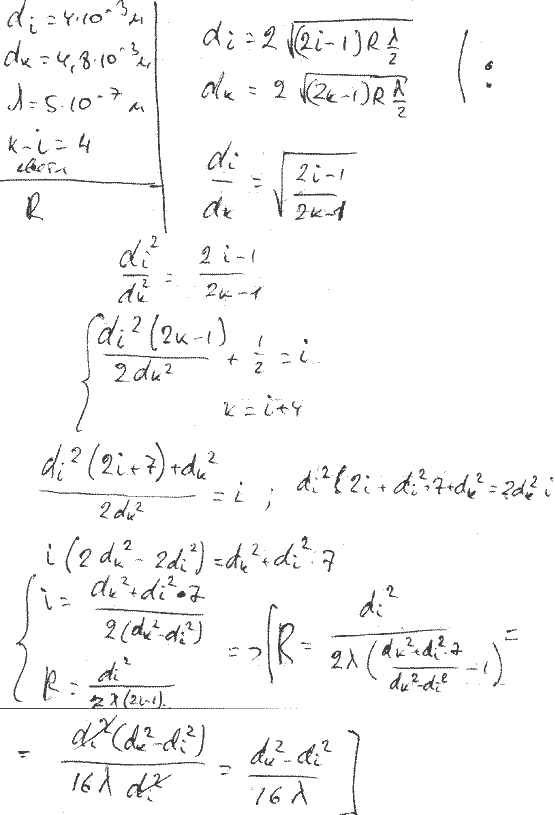 di = 4·10⁻³ м
dк = 4,8·10⁻³ м
λ = 5·10⁻⁷ м
к-i = 4
R
di = 2 √((2i-1)R λ/2)
dк = 2 √((2к-1)R λ/2)
( :
di/dк = √((2i-1)/(2к-1))
di²/dк² = (2i-1)/(2к-1)
{ di²(2к-1)/2dк² + 1/2 = i
к = i+4
(di²(2i+7)+dк²)/2dк² = i ; di²{2i + di²·7+dк² = 2dк² i
i(2dк² - 2di²) = dк²+di²·7
{ i = (dк²+di²·7)/(2(dк²-di²))
R = di²/(2λ(2i-1))
=> [R = di²/(2λ((dк²+di²·7)/(dк²-di²) - 1)) =
= di²(dк²-di²)/(16λ di²) = (dк²-di²)/(16λ) ]